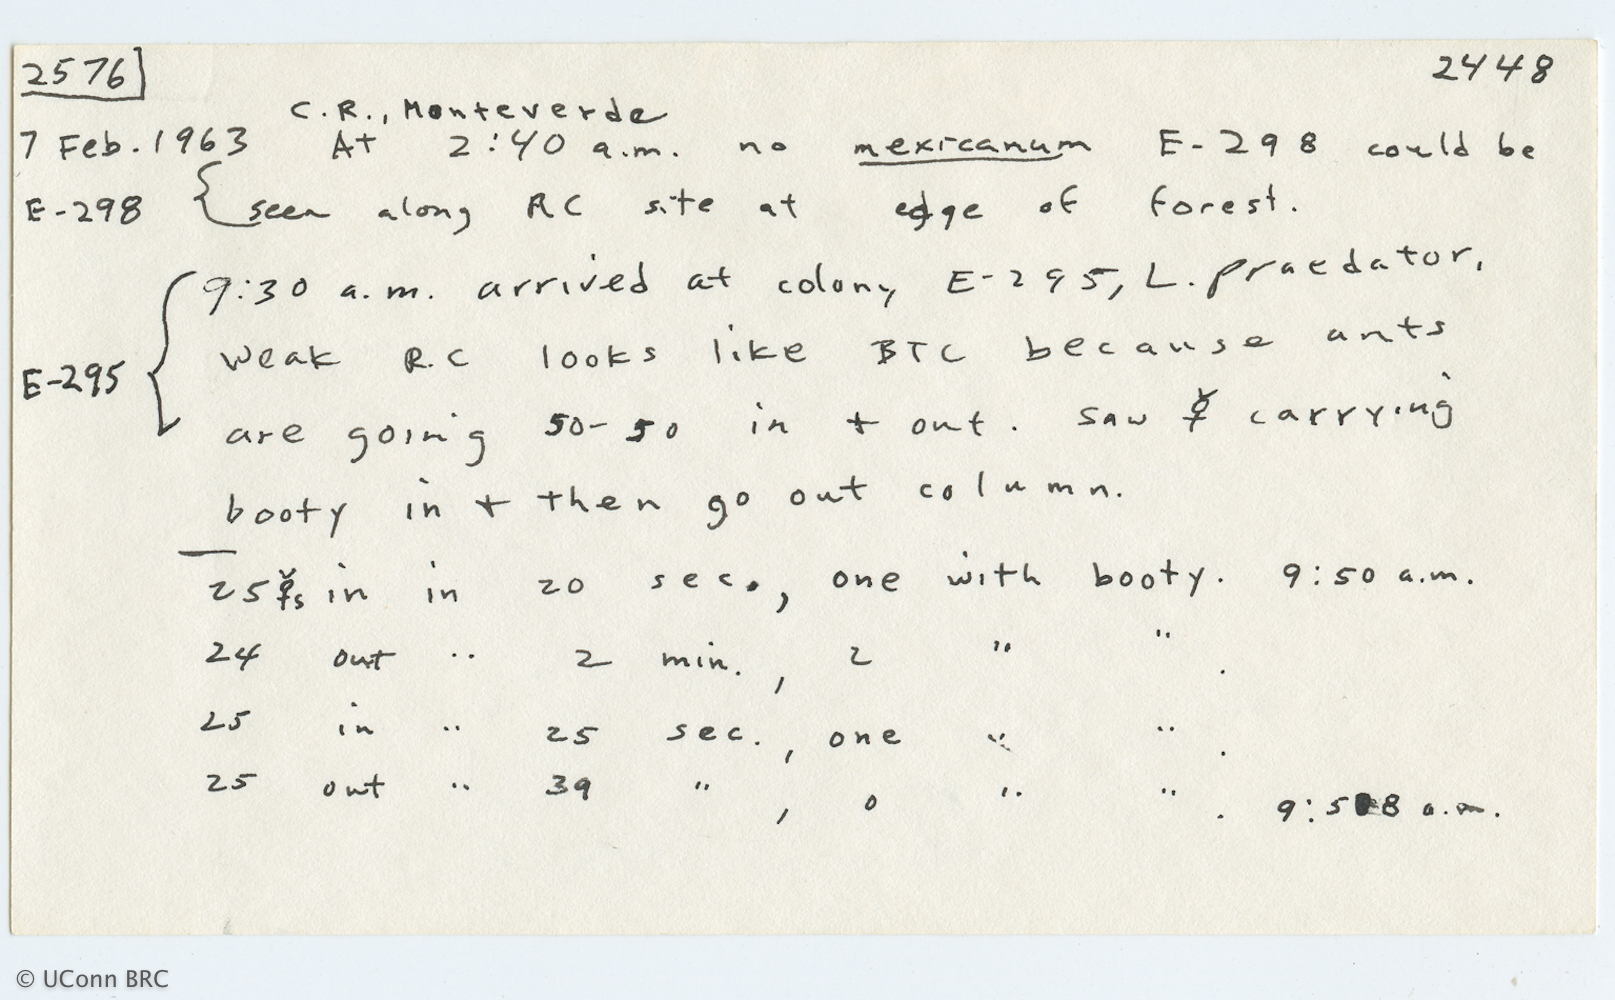 2576 2448
C.R., Monteverde
7 Feb. 1963 At 2:40 a.m. no mexicanum E-298 could be
E-298 { seen along RC site at edge of forest.
9:30 a.m. arrived at colony E-295, L. praedator,
weak R.C looks like BTC because ants
E-295 {
are going 50-50 in + out. Saw ☿ carrying
booty in + then go out column.
25 ☿s in in 20 sec., one with booty. 9:50 a.m.
24 out " 2 min., 2 " ".
25 in " 25 sec., one " ".
25 out " 39 ", 0 " ". 9:58 a.m.
© UConn BRC